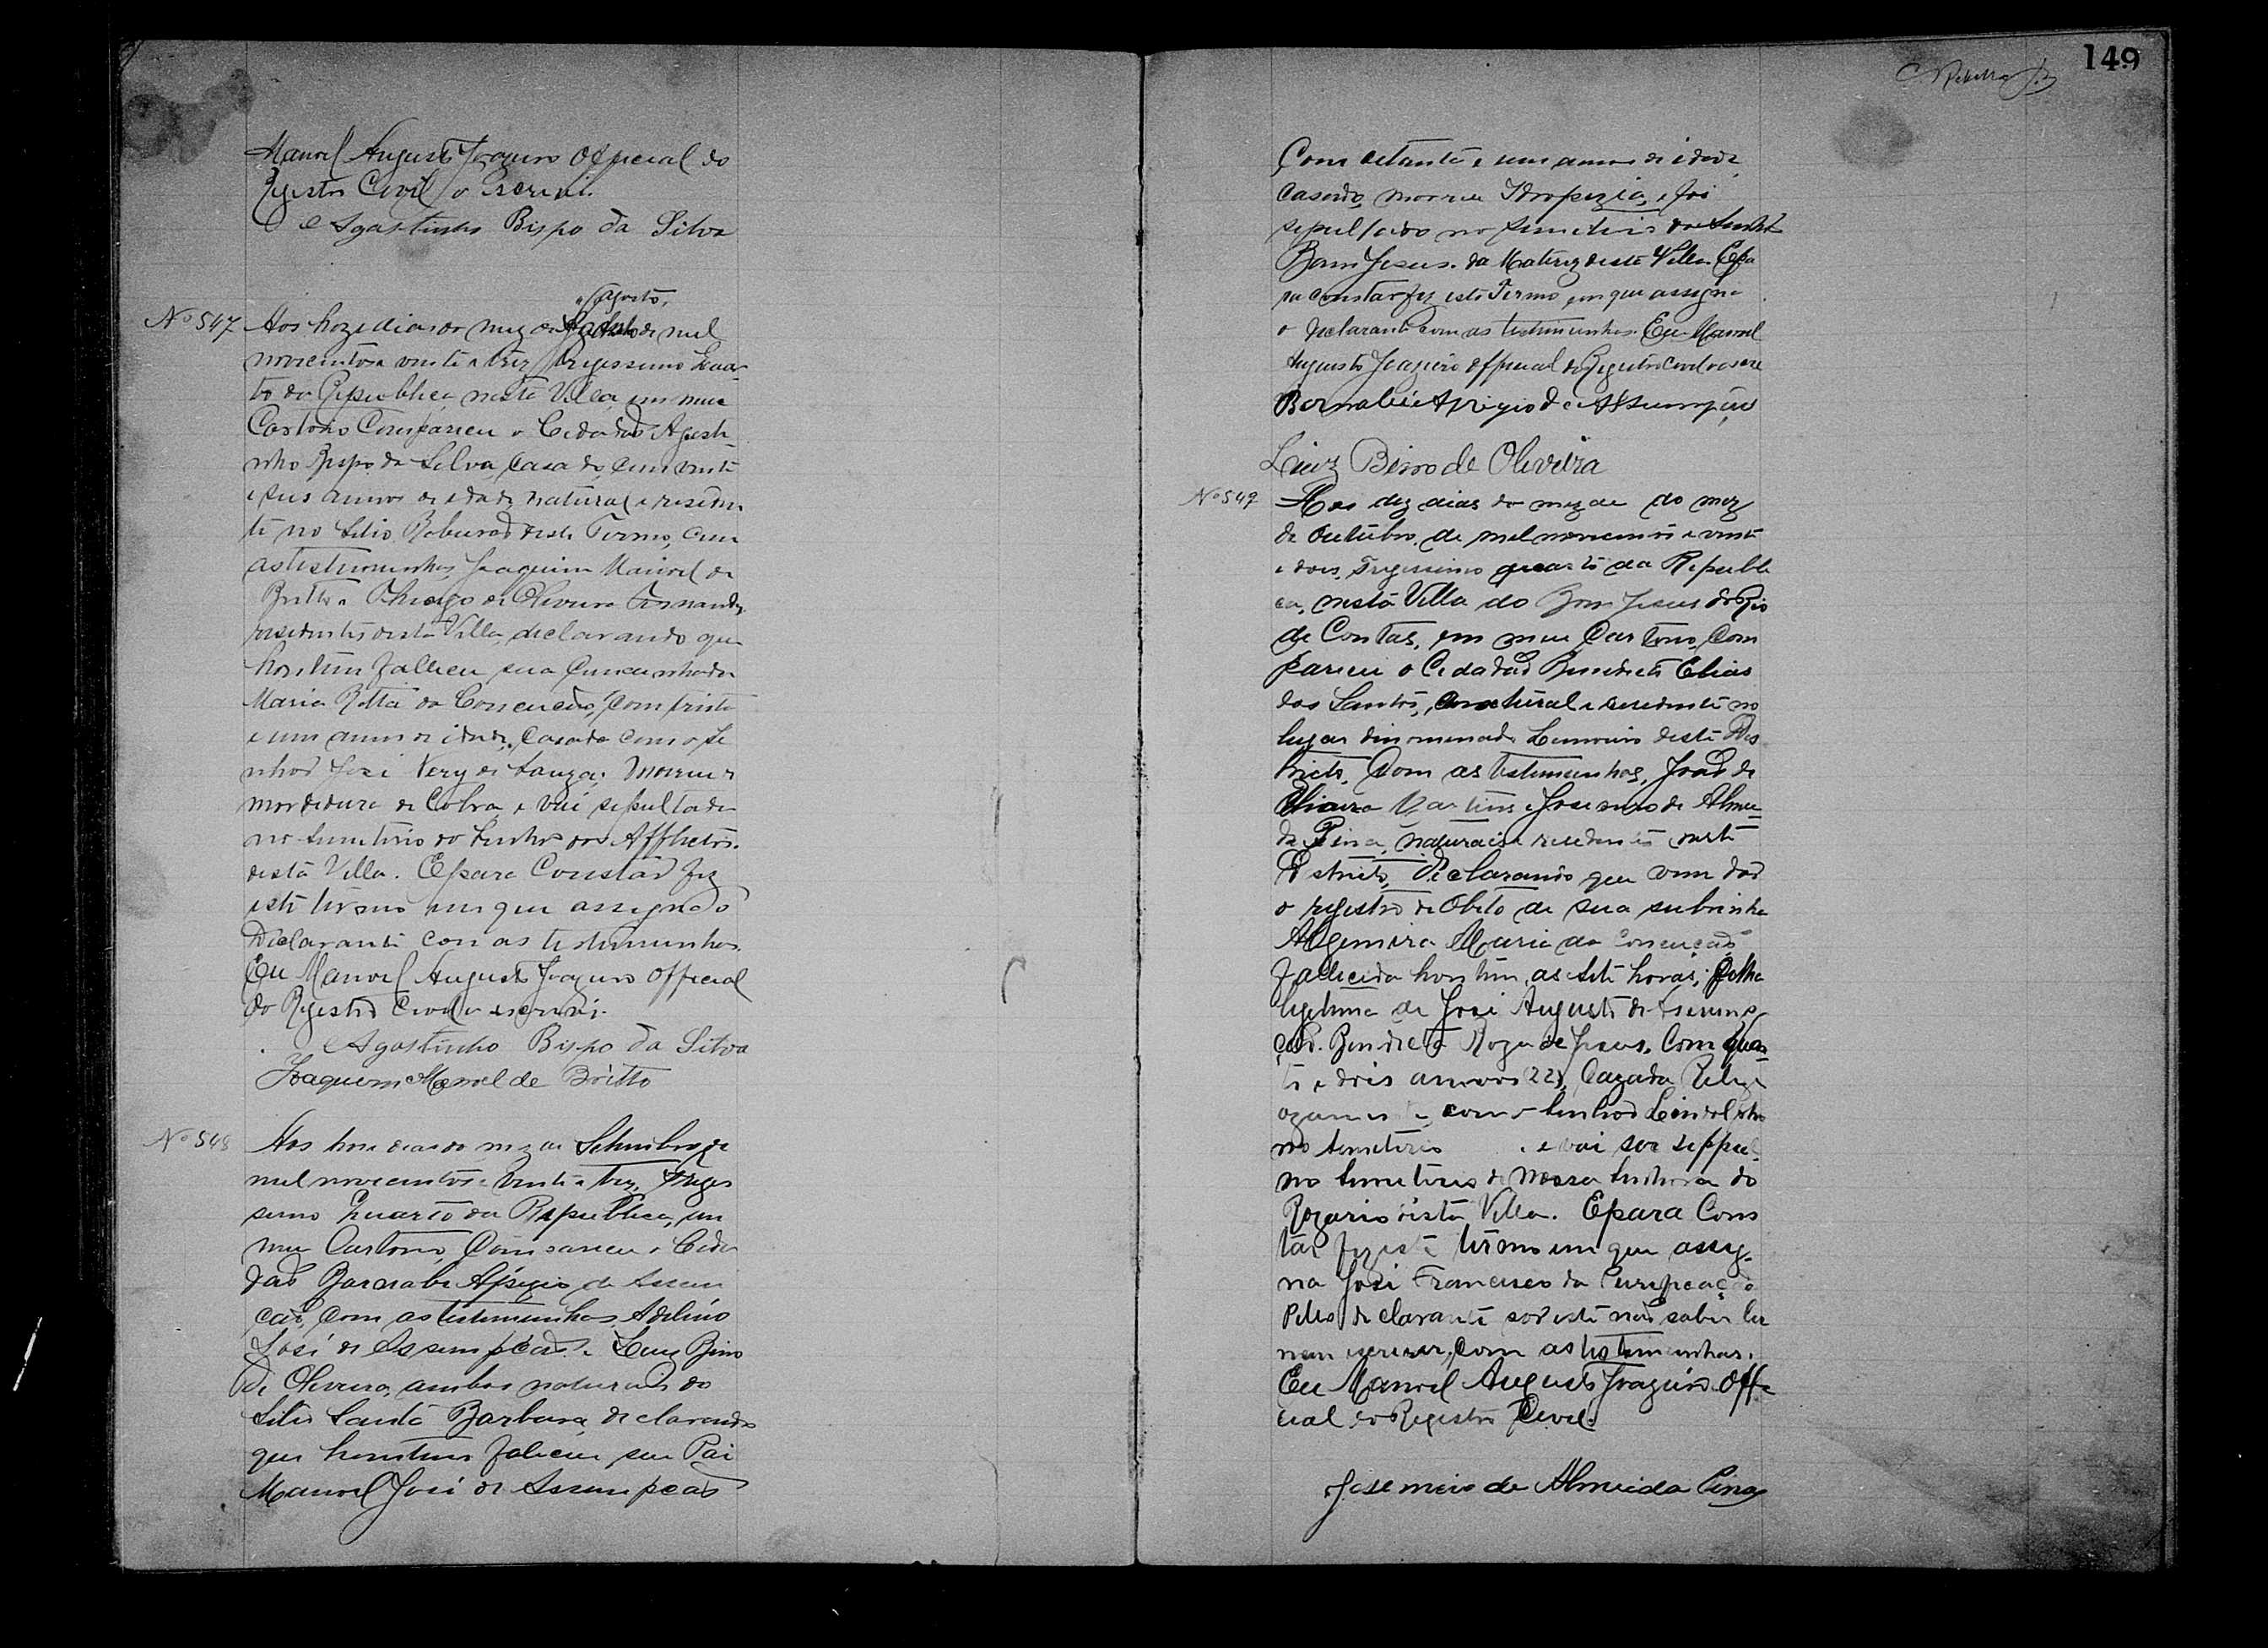 149
Manoel Augusto Joazeiro Official do
Registro Civil o escrevi.
Agostinho Bispo da Silva
Agosto,
Nº 547 Aos hoze dias do mez de de mil
novecentos e vinte e trez trigessimo Quar
to da Republica nesta Villa em meu
Cartorio Compareceu o Cidadão Agosti
nho Bispo da Silva, Casado, com vinte
e seis annos de edade natural e residen
te no Sitio deste Termo, com
as testemunhas, Joaquim Manoel de
Britto e Thiago de Oliveira
residentes desta Villa, declarando que
hontem falleceu sua Cuncunhada
Maria Ritta da Conceicão, Com trinta
e um annos de idade, Casada com o Se
nhor José Nery de Souza; morreu de
mordedura de Cobra e vai sepultada
no Semiterio do Senhor dos Afflictos.
desta Villa. E para Constar fiz
este termo em que assigna o
Declarante con as testemunhas.
Eu Manoel Augusto Joazeiro Official
do Registro Civil o escrevi.
Agostinho Bispo da Silva
Joaquem Manoel de Britto
Nº 548 Aos dias do mez de Setembro de
mil novecentos e vinte e trez, Triges
simo Quarto da Republica, em
meu Cartorio, Compareceu o Cida
dão Barnabe Apigio de Assum
cão, Com as testemunhas Adelino
José de Assumpcão e Luiz Bino
de Oliveira, ambos naturaes do
Sitio Santa Barbara, declarando
que hontem faleceu seu Pai
Manoel José de Assumpcão
Com oitanta e um annos de idade,
casado, morreu Idropezia, e foi
sepultado no Semiterio do Senhor
Bom Jesus da Matriz desta Villa. E pa
ra constar fiz este Termo em que assigna
o declarante com as testemunhas. Eu Manoel
Augusto Joazeiro Official do Registro Civil o escre
Bernabé Aprigio de Assumpção
Luiz Bino de Oliveira
Nº 549 Aos dez dias do mez de do mez
de Outubro, de mil novecentos e vinte
e dois, Trigessimo quarto da Republi
ca, nesta Villa do Bom Jesus do Rio
de Contas, em meu Cartorio, Com
pareceu o Cidadão Benedicto Elias
dos Santos, natural e residente no
lugar dinominado Limoeiro deste Dis
tricto, Com as testemunhas, João de
Oliveira Martins e Jose meio de Almei
da Pina, naturais e residentes neste
Districto, Declarando que vem dar
o registro de Obito de sua subrinha
Algemira Maria da Conceição
fallecida hontem, as sete horas, filha
legitima de José Augusto de Assump
ção. Benedicta Roza de Jesus, Com quan
te e dois annos (22), Cazada Religi
ozamente, com o Senhor Lindolpho
no Semiterio e vai ser seppul
no Semiterio de Nossa Senhora do
Rozario desta Villa. E para Cons
tar fiz este termo em que assig
na José Francisco da Purificação
Pello declarante por este não saber ler
nem escrever, com as testemunhas.
Eu Manoel Augusto Joazeiro Offi
cial do Registro Civil.
Jose meio de Almeida Pina